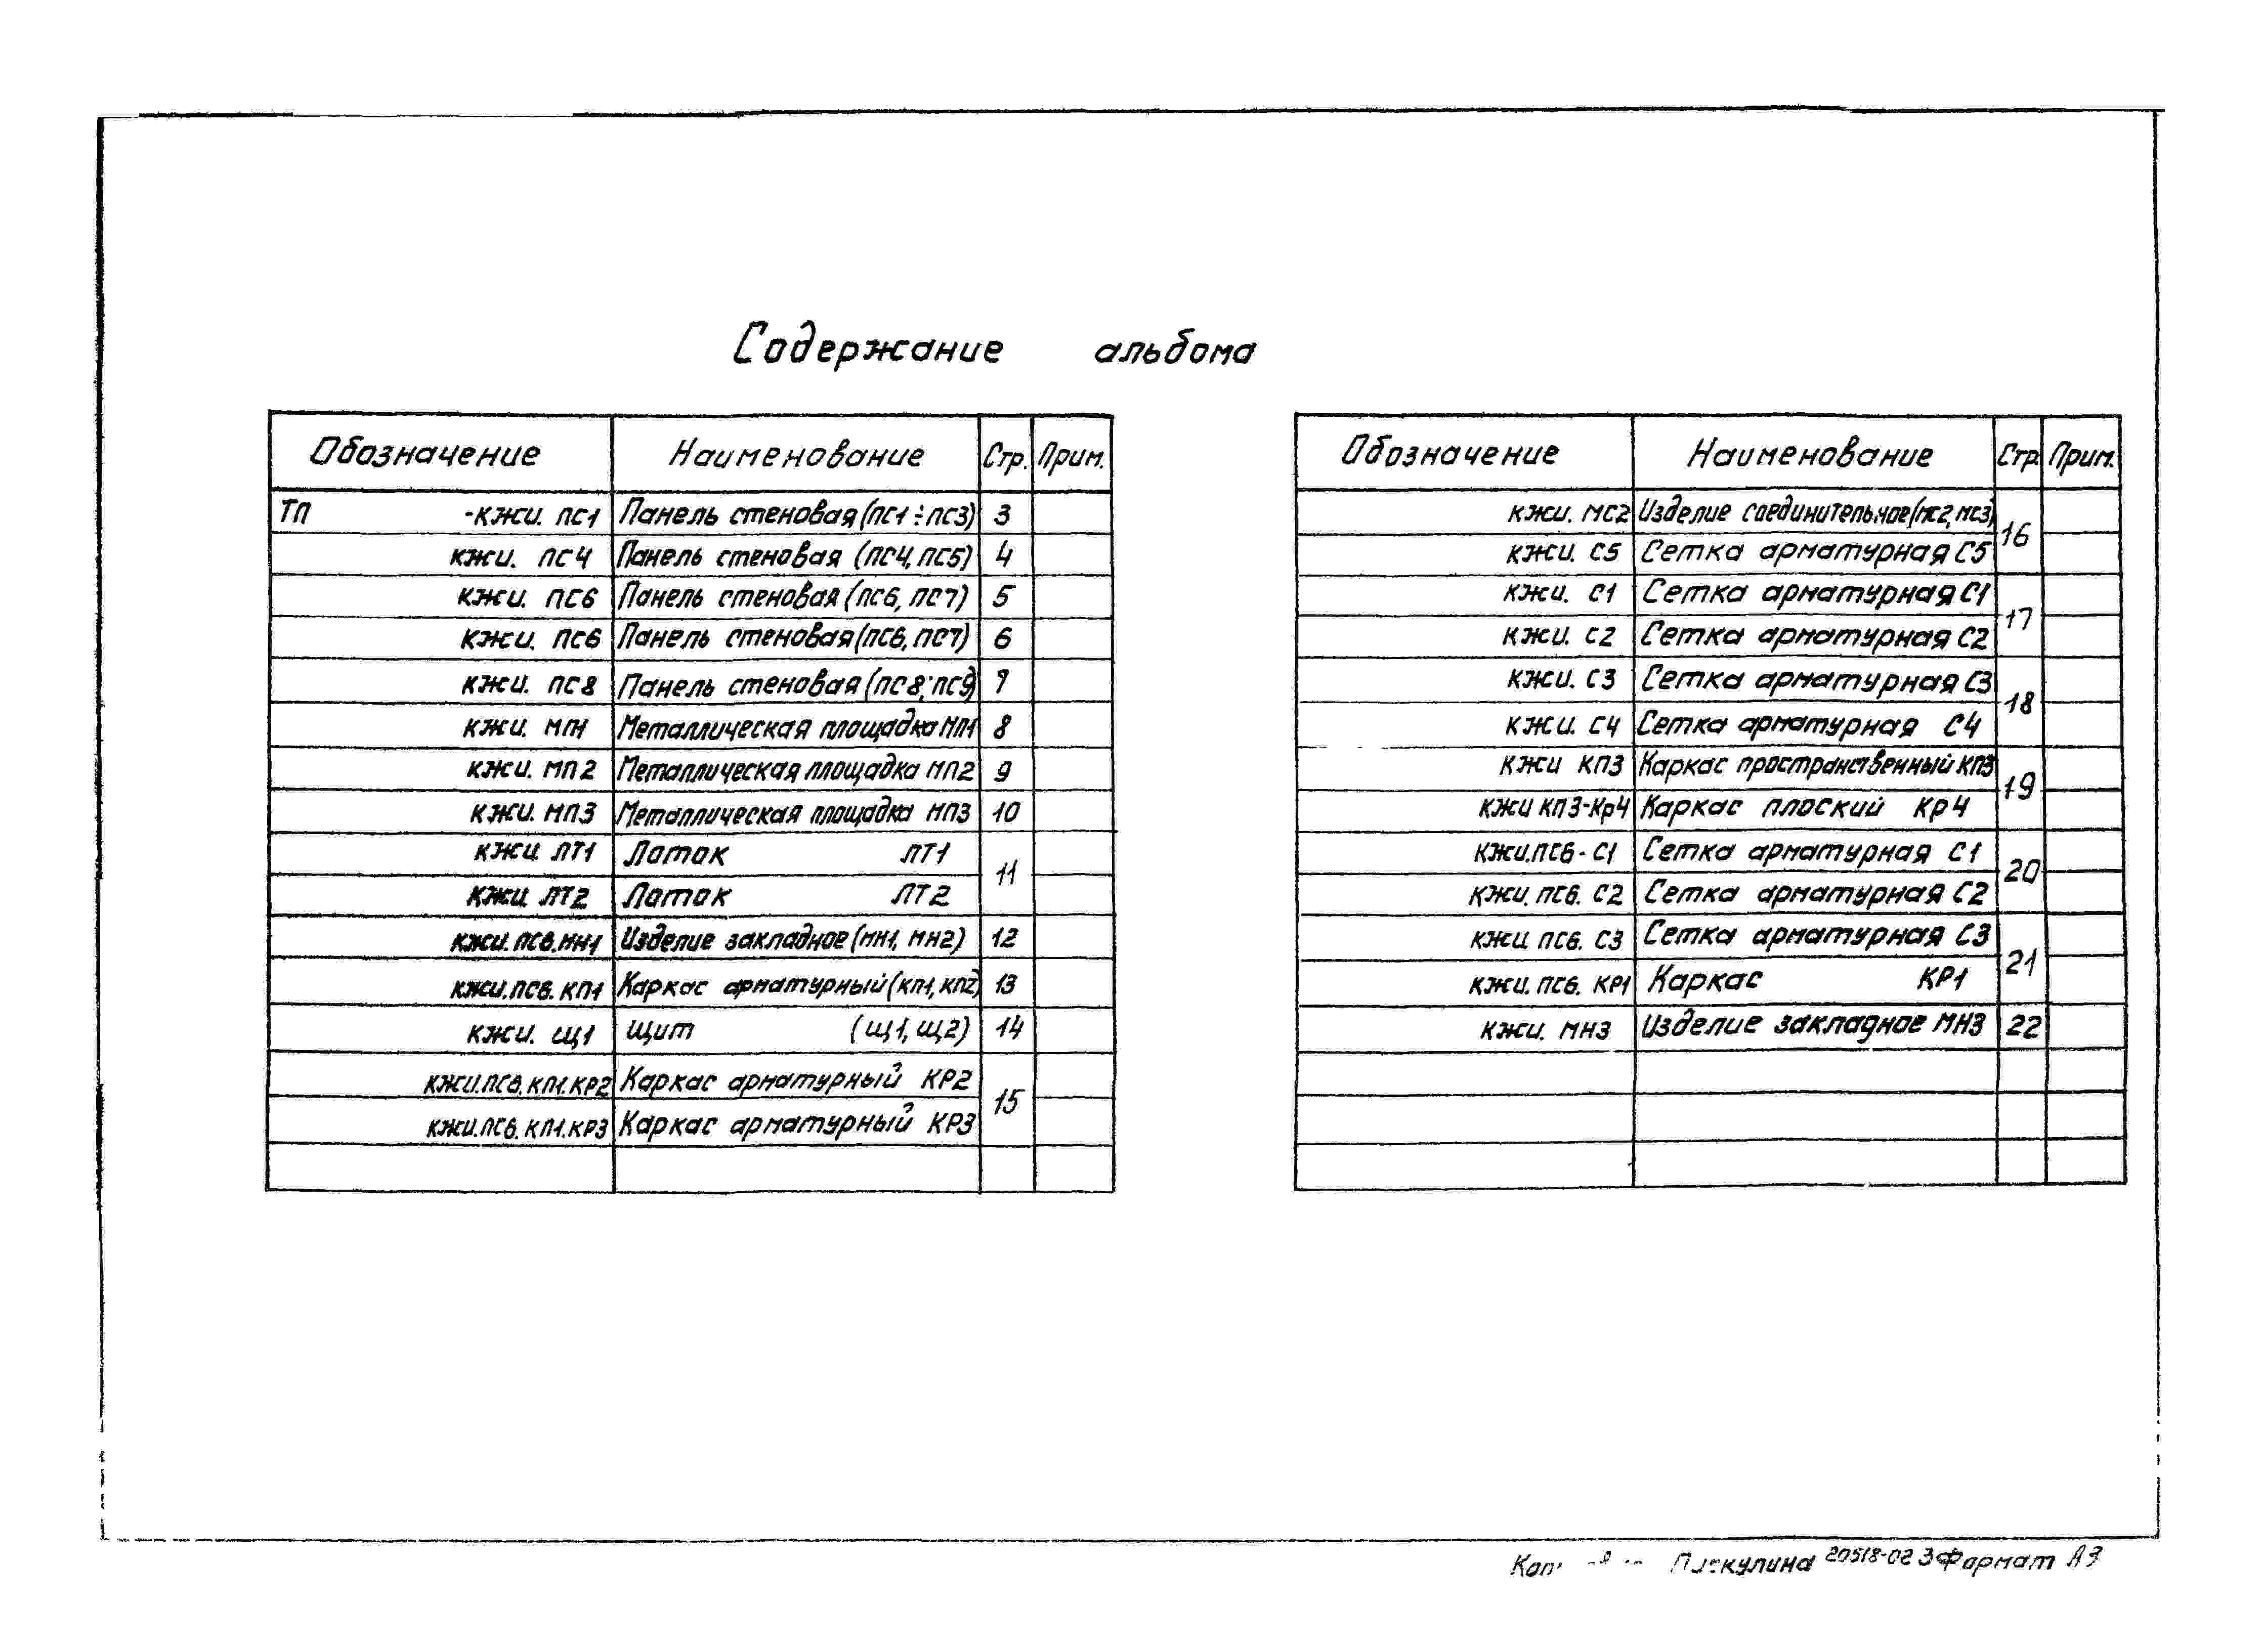 Содержание альбома
Обозначение Наименование Стр. Прим.
ТП -КЖИ. ПС1 Панель стеновая (ПС1÷ПС3) 3
КЖИ. ПС4 Панель стеновая (ПС4, ПС5) 4
КЖИ. ПС6 Панель стеновая (ПС6, ПС7) 5
КЖИ. ПС6 Панель стеновая (ПС6, ПС7) 6
КЖИ. ПС8 Панель стеновая (ПС8; ПС9) 7
КЖИ. МП1 Металлическая площадка МП1 8
КЖИ. МП2 Металлическая площадка МП2 9
КЖИ. МП3 Металлическая площадка МП3 10
КЖИ ЛТ1 Лоток ЛТ1 11
КЖИ ЛТ2 Лоток ЛТ2
КЖИ.ПС6.МН1 Изделие закладное (МН1, МН2) 12
КЖИ.ПС6.КП1 Каркас арматурный (КП1, КП2) 13
КЖИ. Щ1 Щит (Щ1, Щ2) 14
КЖИ.ПС6.КП1.КР2 Каркас арматурный КР2 15
КЖИ.ПС6.КП1.КР3 Каркас арматурный КР3
Обозначение Наименование Стр Прим.
КЖИ. МС2 Изделие соединительное (МС2, МС3) 16
КЖИ. С5 Сетка арматурная С5
КЖИ. С1 Сетка арматурная С1 17
КЖИ. С2 Сетка арматурная С2
КЖИ. С3 Сетка арматурная С3 18
КЖИ. С4 Сетка арматурная С4
КЖИ КП3 Каркас пространственный КП3 19
КЖИ КП3-Кр4 Каркас плоский Кр4
КЖИ.ПС6-С1 Сетка арматурная С1 20
КЖИ. ПС6. С2 Сетка арматурная С2
КЖИ ПС6. С3 Сетка арматурная С3 21
КЖИ. ПС6. КР1 Каркас КР1
КЖИ. МН3 Изделие закладное МН3 22
20518-02 3 Формат А3